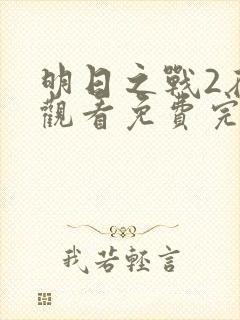 明日之戰2
觀看免費完
我若輕言